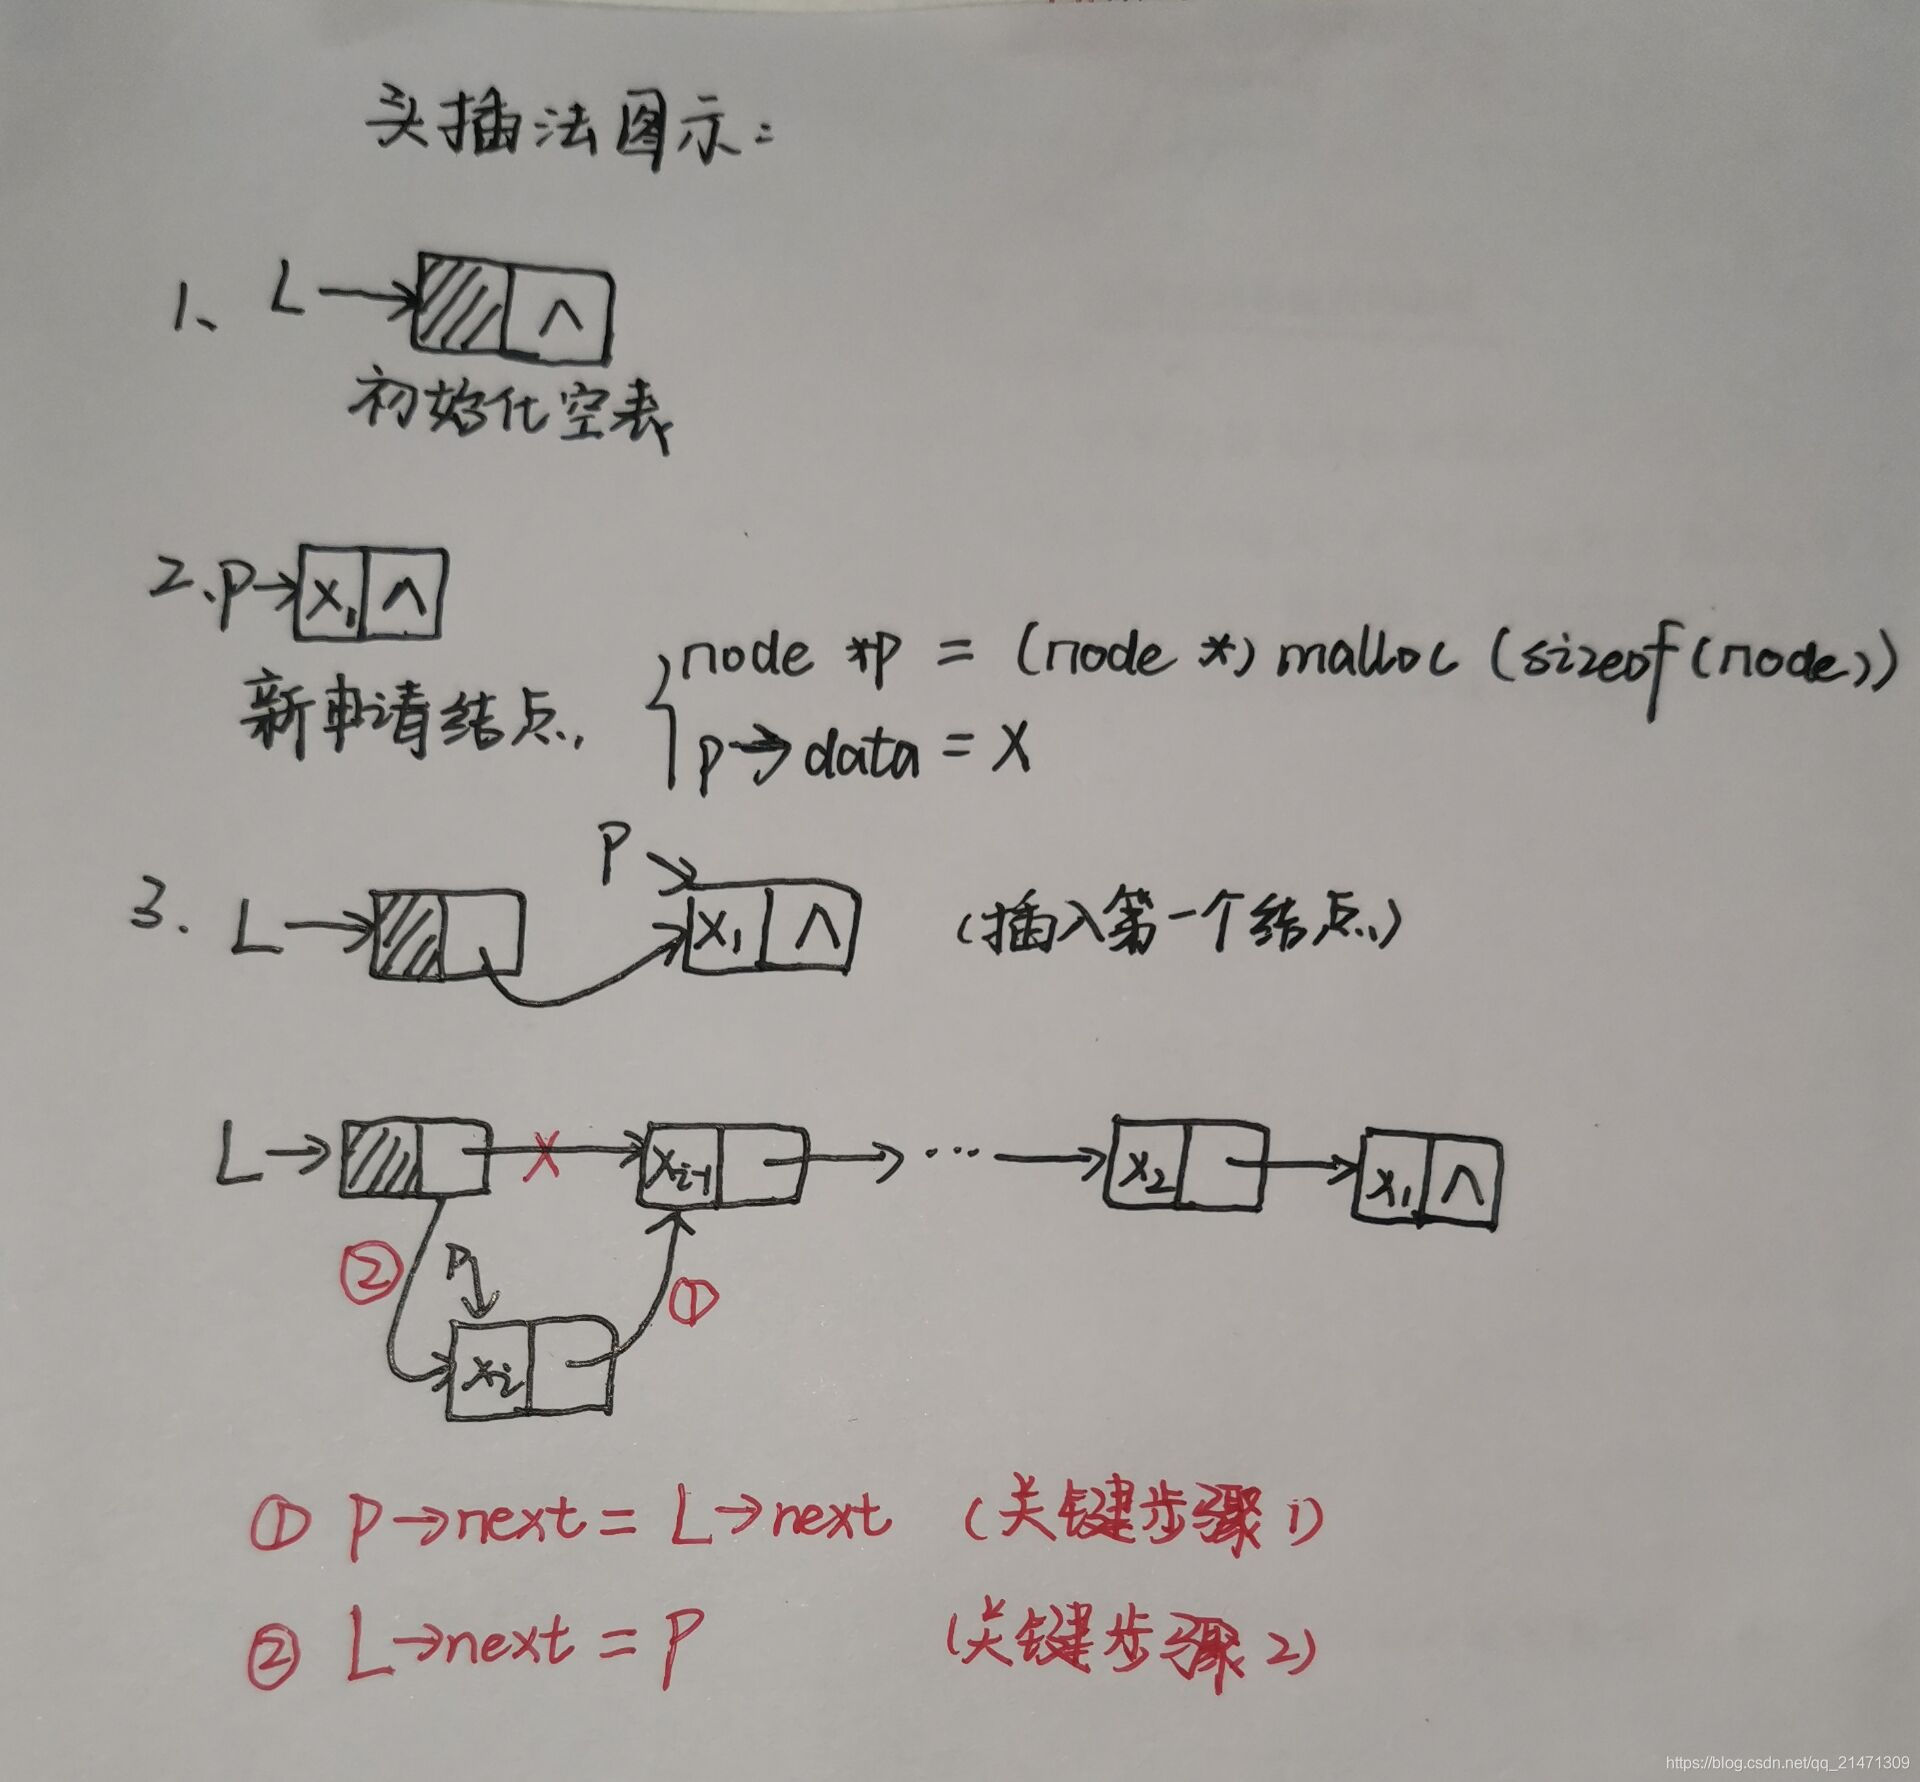 头插法图示：
1、 L → ∧
初始化空表
2、p→ x₁ ∧
node *p = (node *) malloc (sizeof(node))
新申请结点，
p→data = x
P
3. L → x₁ ∧ (插入第一个结点)
L→ X xᵢ₋₁ → ··· → x₂ → x₁ ∧
② P ①
xᵢ
① P→next = L→next (关键步骤1)
② L→next = P (关键步骤2)
https://blog.csdn.net/qq_21471309